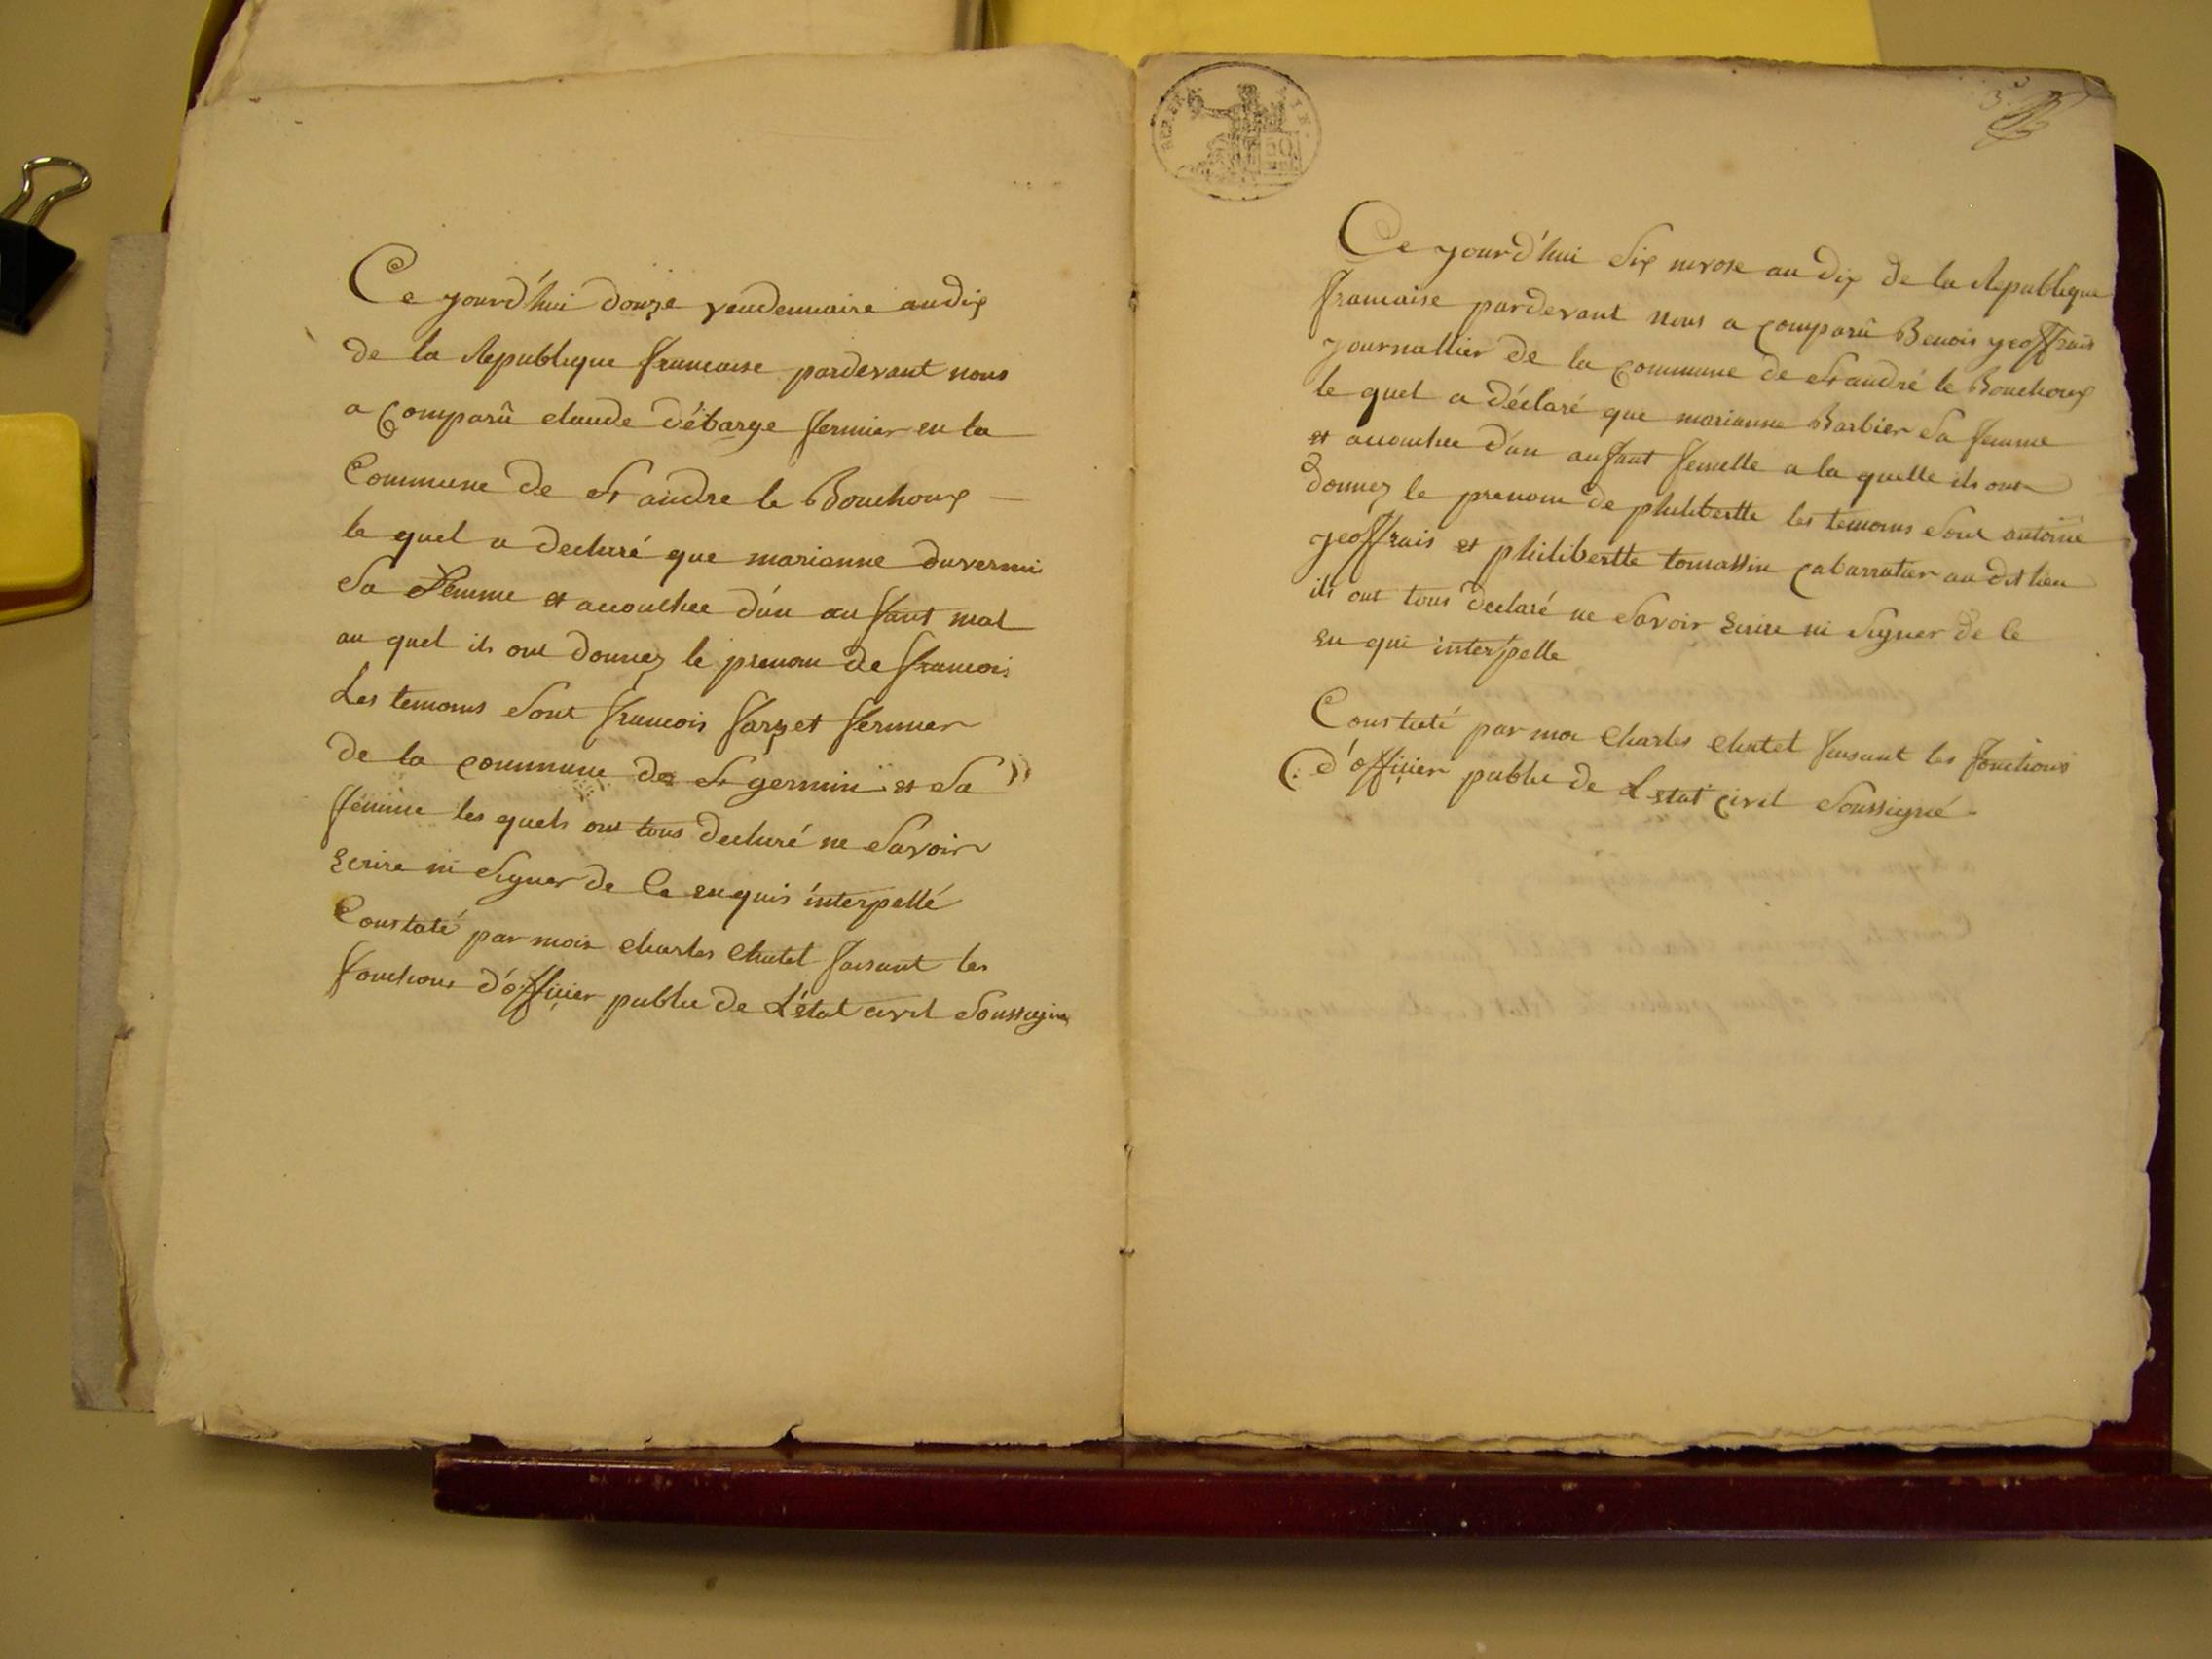 Ce yourd'hui douze vendemiaire an dix
de la Republique francaise pardevant nous
a comparû claude débarge fermier en la
Commune de St andre le Bouchoux
le quel a declaré que marianne duvernai
sa femme et accouchee d'un anfant mal
au quel ils ont donnez le prenom de francois
Les temoins sont francois farget fermier
de la commune de St germin et sa
femme les quels ont tous declaré ne savoir
Ecrire ni signer de ce enquis interpellé
Constaté par moi Charles Chatel faisant les
fonctions d'officier public de L'état civil soussigné
REP. FRA
50
3e
Ce yourd'hui six nivose an dix de la Republique
francaise pardevant nous a comparû Benois geoffrais
journallier de la commune de St andré le Bouchoux
le quel a déclaré que marianne Barbier sa femme
et accouchee d'un anfant femelle a la quelle ils ont
donnez le prenom de philibertte les temoins sont antoine
geoffrais et philibertte tomassin cabarratier au dit lieu
ils ont tous declaré ne savoir Ecrire ni signer de ce
en qui interpelle
Constaté par moi Charles Chatel faisant les fonctions
d'officier public de L'etat civil soussigné